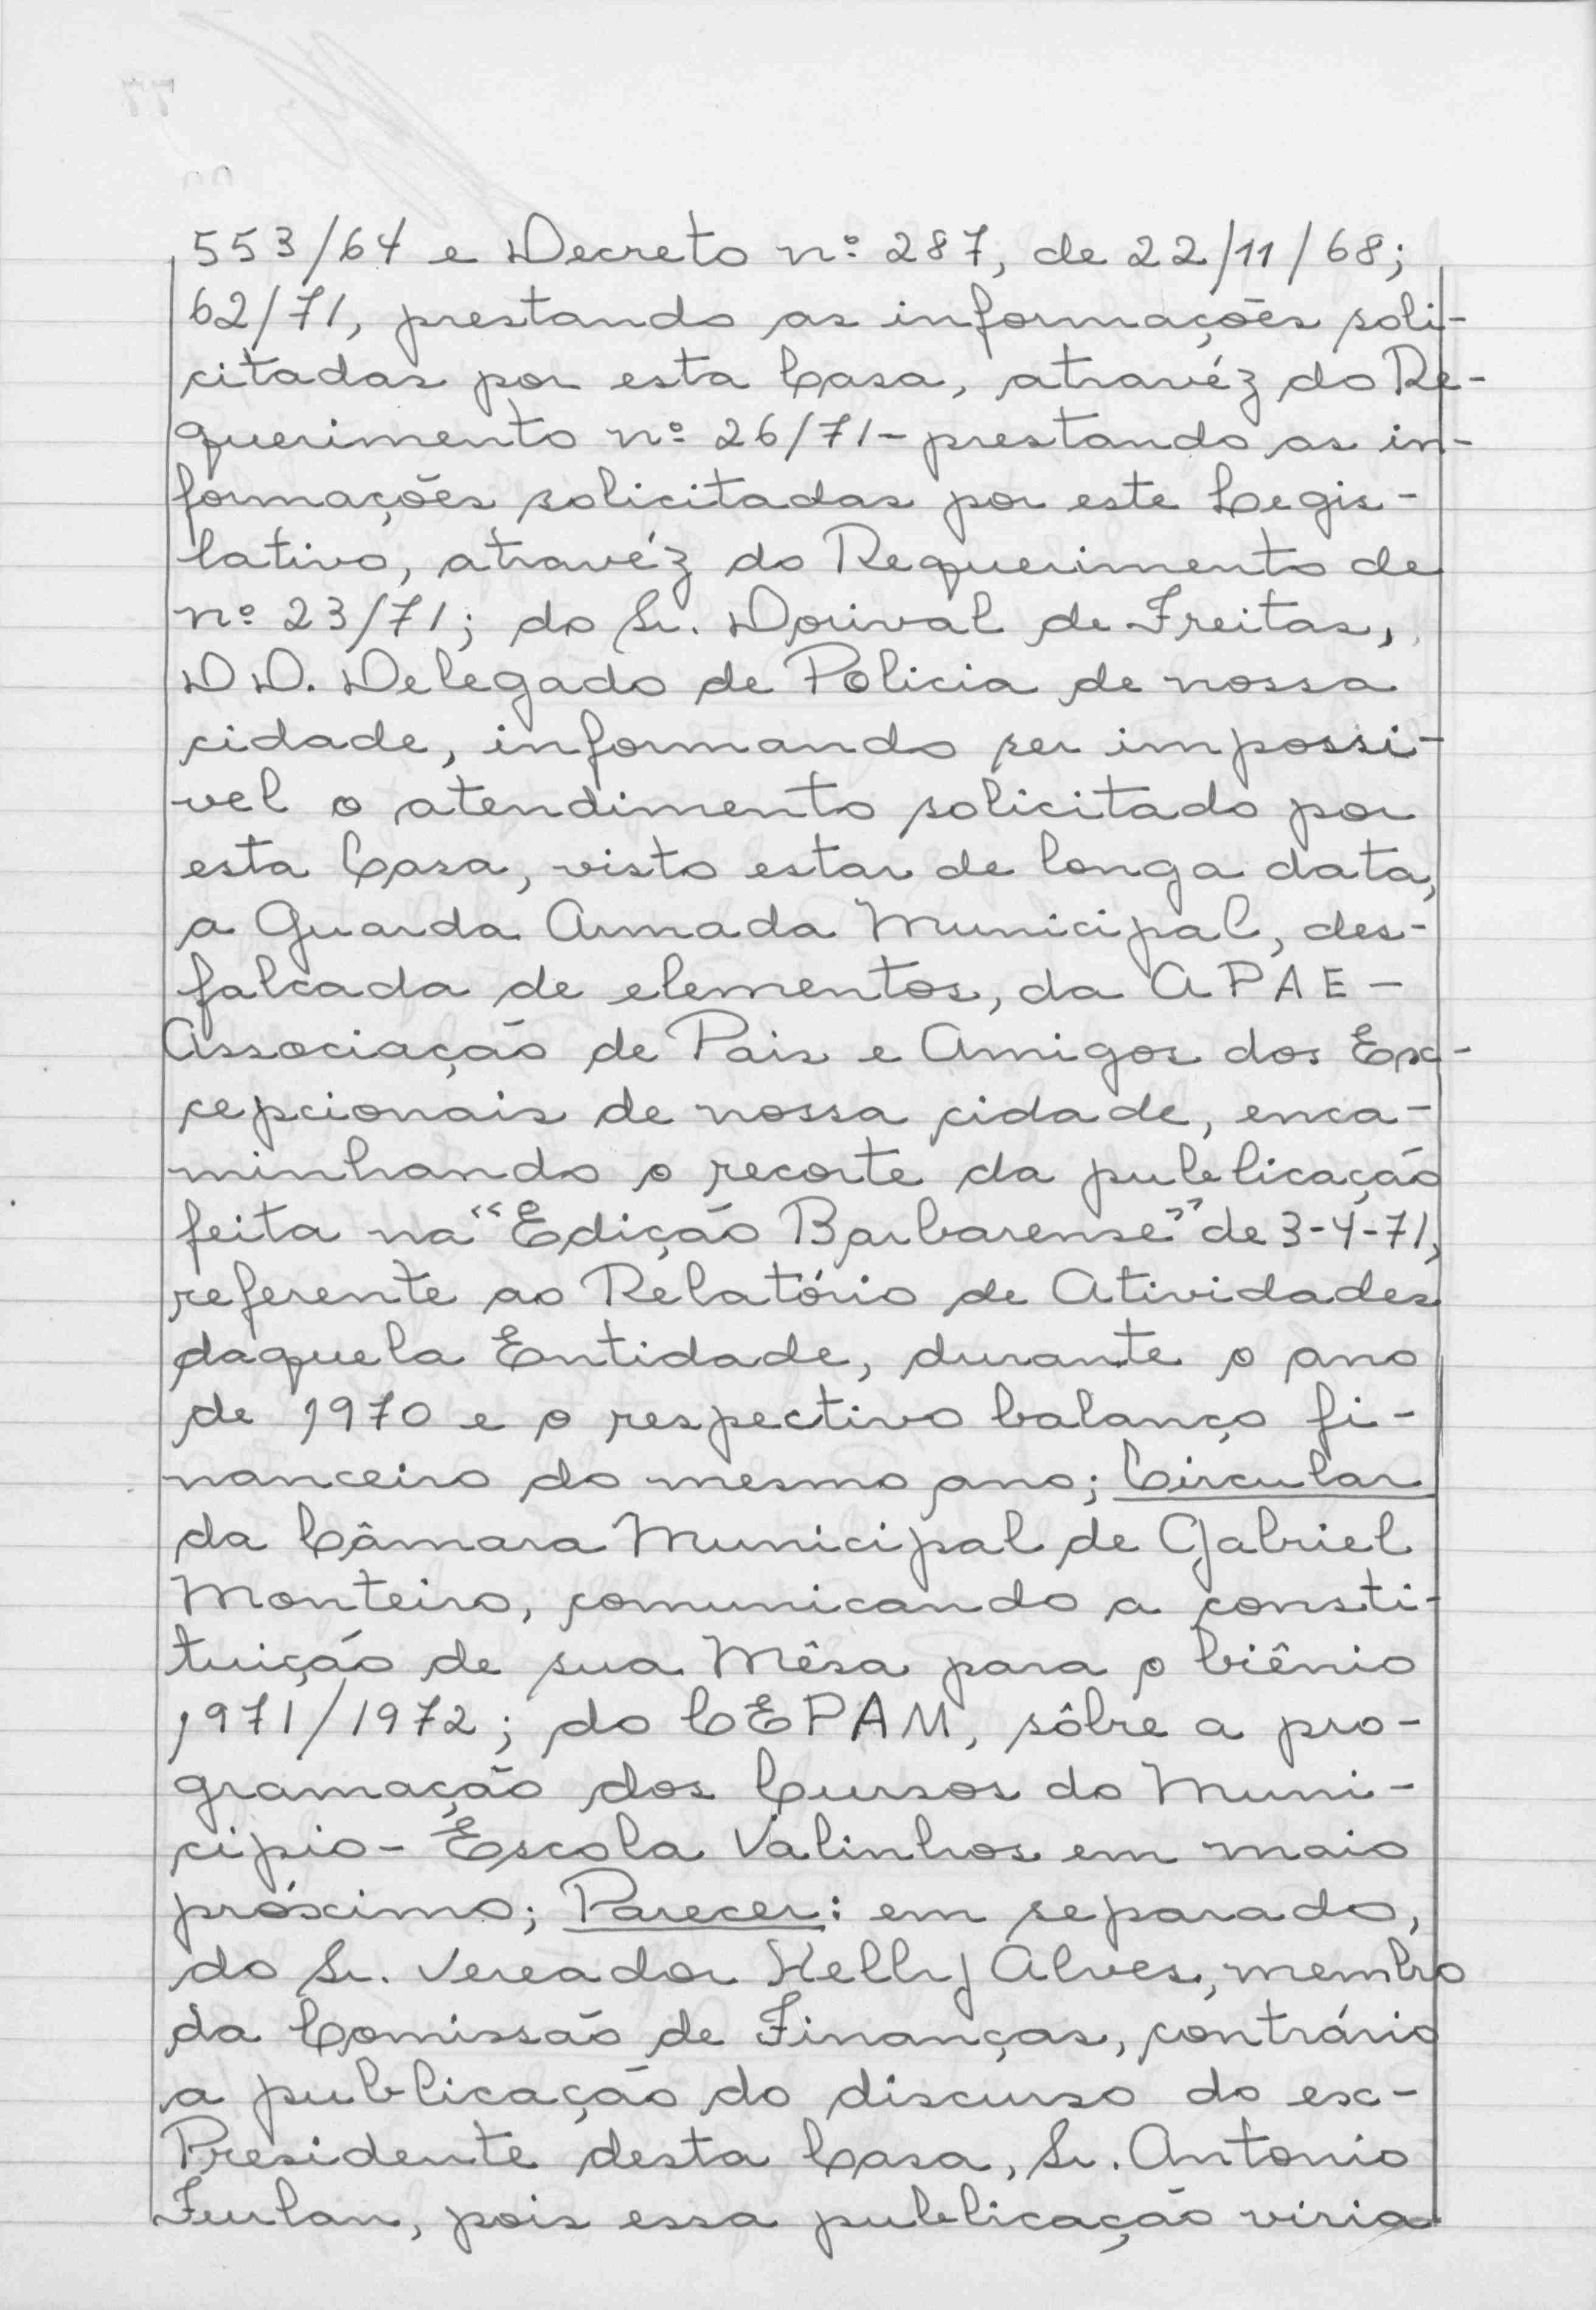 553/64 e Decreto nº 287, de 22/11/68;
62/71, prestando as informações soli-
citadas por esta Casa, atravéz do Re-
querimento nº 26/71- prestando as in-
formações solicitadas por este Legis-
lativo, atravéz do Requerimento de
nº 23/71; do Sr. Dorival de Freitas,
DD. Delegado de Policia de nossa
cidade, informando ser impossi-
vel o atendimento solicitado por
esta Casa, visto estar de longa data,
a Guarda Armada Municipal, des-
falcada de elementos, da APAE -
Associação de Pais e Amigos dos Ex-
cepcionais de nossa cidade, enca-
minhando o recorte da publicação
feita na "Edição Barbarense" de 3-4-71,
referente ao Relatório de Atividades
daquela Entidade, durante o ano
de 1970 e o respectivo balanço fi-
nanceiro do mesmo ano; Circular
da Câmara Municipal de Gabriel
Monteiro, comunicando a consti-
tuição de sua Mêsa para o biênio
1971/1972; do CEPAM, sôbre a pro-
gramação dos Cursos do Muni-
cipio - Escola Valinhos em maio
próximo; Parecer: em separado,
do Sr. Vereador Kelly Alves, membro
da Comissão de Finanças, contrário
a publicação do discurso do ex-
Presidente desta Casa, Sr. Antonio
Furlan, pois essa publicação viria